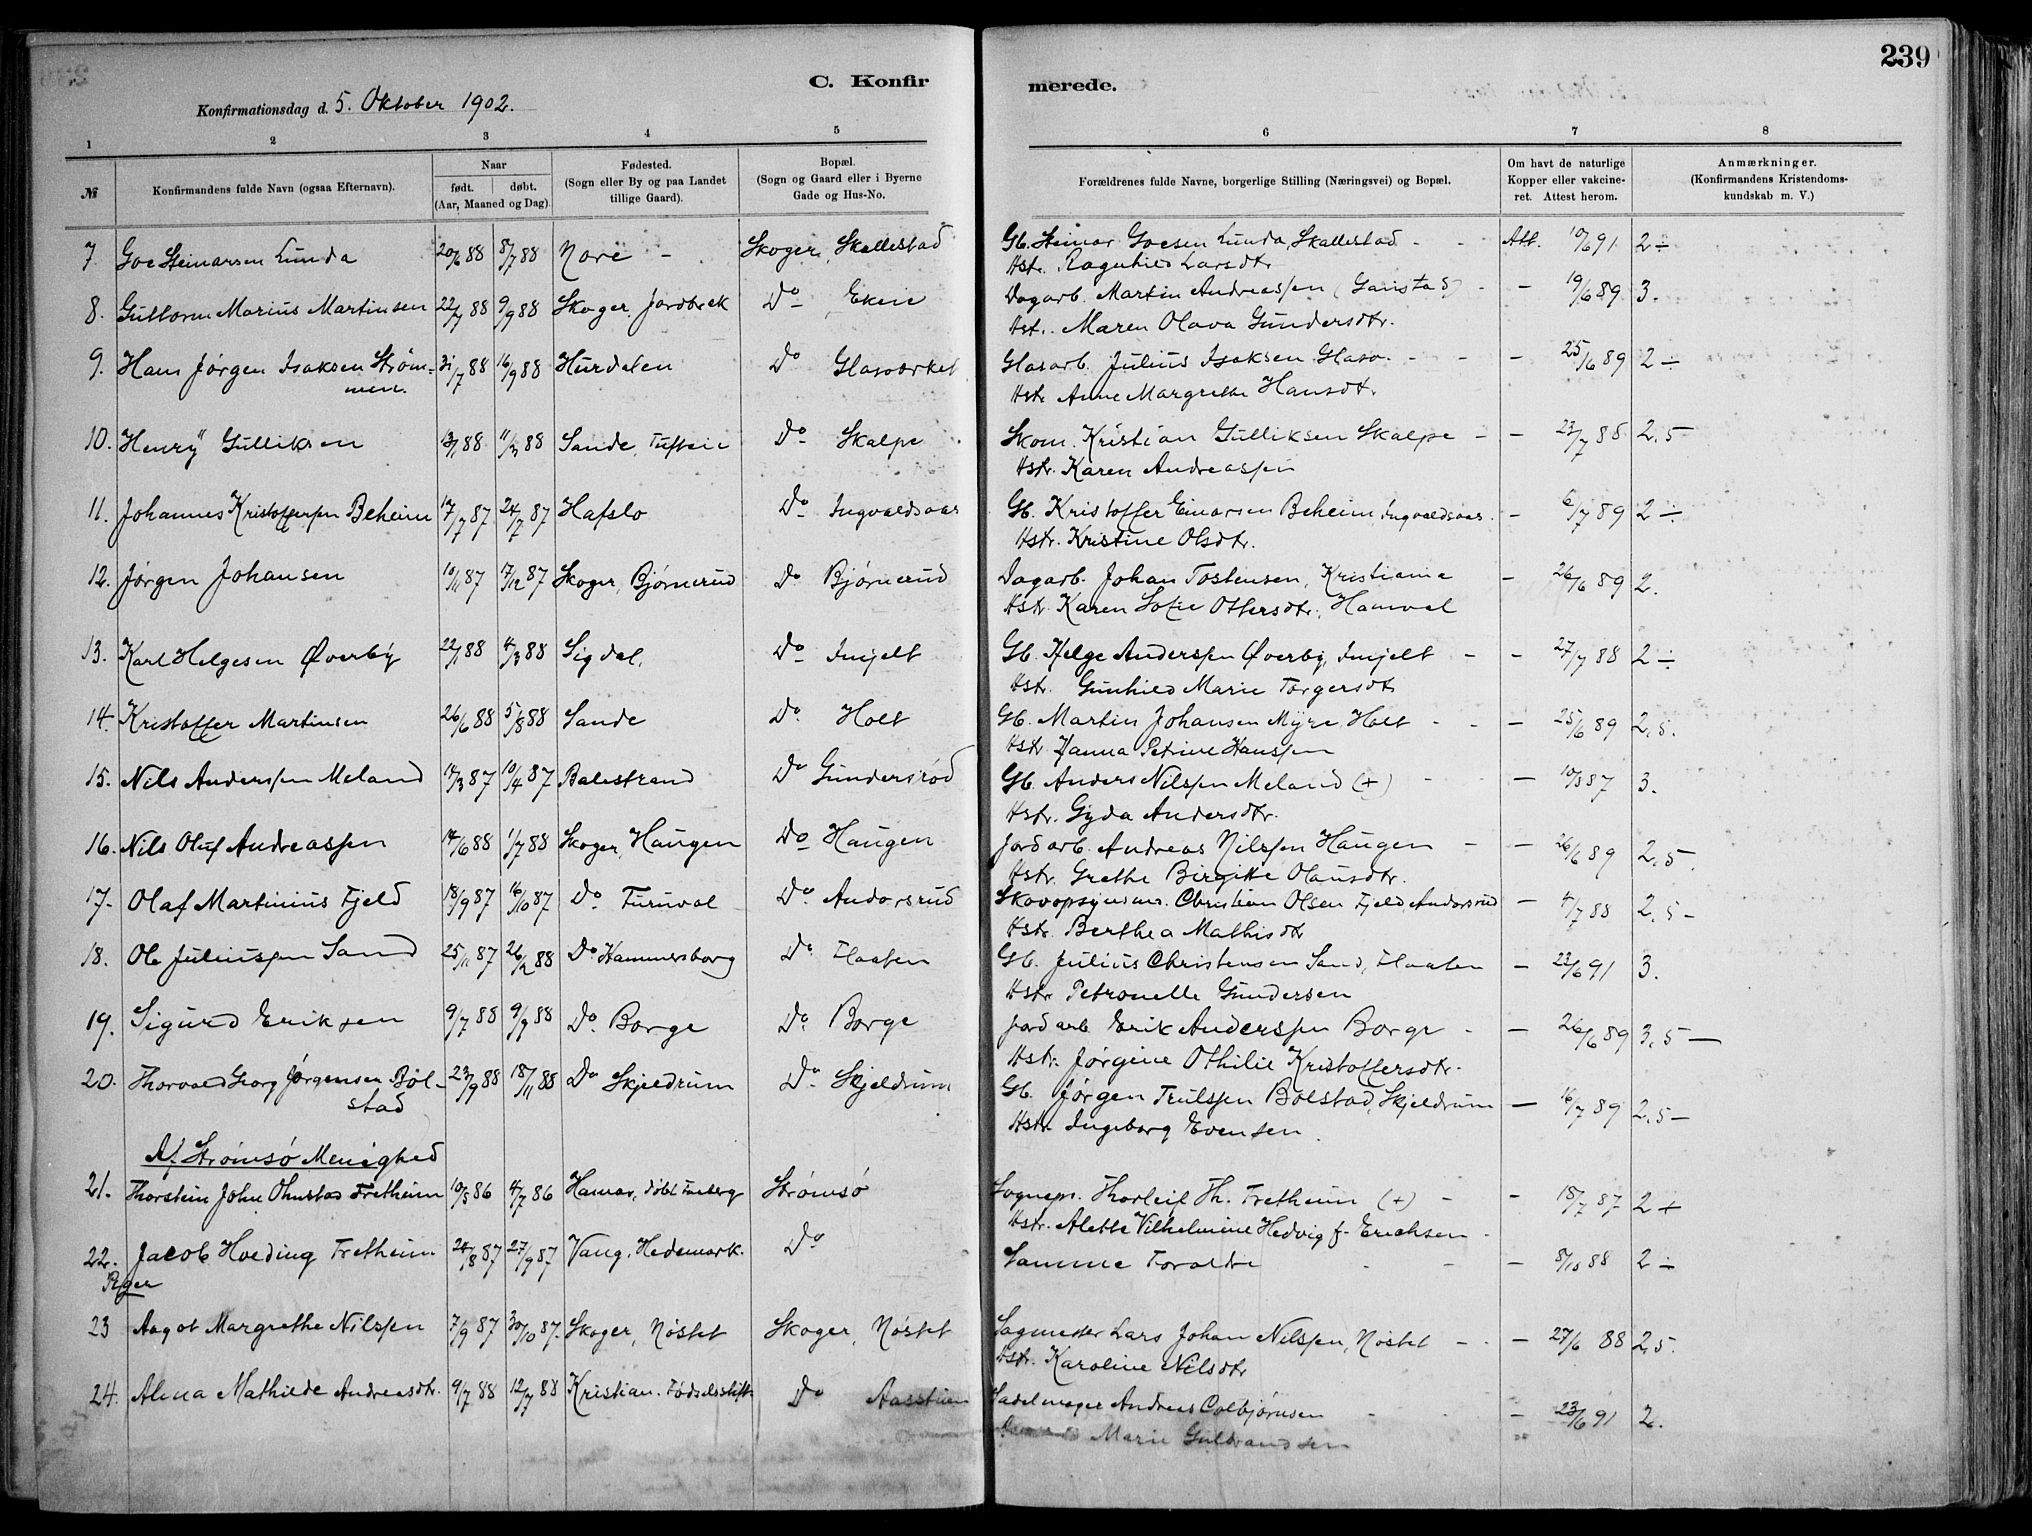 239
C. Konfirmerede.
Konfirmationsdag d. 5. Oktober 1902.
1 2 3 4 5 6 7 8
№ Konfirmandens fulde Navn (ogsaa Efternavn). Naar født. døbt. (Aar, Maaned og Dag). Fødested. (Sogn eller By og paa Landet tillige Gaard). Bopæl. (Sogn og Gaard eller i Byerne Gade og Hus-No. Forældrenes fulde Navne, borgerlige Stilling (Næringsvei) og Bopæl. Om havt de naturlige Kopper eller vakcineret. Attest herom. Anmærkninger. (Konfirmandens Kristendomskundskab m. V.)
7 Goe Steinarsen Lunda 20/6 88 8/7 88 Nore - Skoger, Skallestad Gb. Steinar Goesen Lunda, Skallestad - - Att. 10/6 91 2 ÷
Hstr. Raguhild Larsdtr
8. Guttorm Marius Martinsen 22/7 88 9/9 88 Skoger, Jordbrek Do Ekeie Dagarb. Martin Andreassen (Ganstad) - - 19/6 89 3.
Hst. Maren Olava Gundersdtr.
9. Hans Jørgen Isaksen Strøm= 31/7 88 16/9 88 Hurdalen Do Glasværket Glasarb. Julius Isaksen Glasv. - - - 25/6 89 2 ÷
men. Hstr Anne Margrethe Hansdtr.
10. Henry Gulliksen 13/1 88 11/3 88 Sande, Tufteie Do Skalpe Skom. Kristian Gulliksen Skalpe - - 23/7 88 2,5
Hstr. Karen Andreassen
11. Johannes Kristoffersen Beheim 17/7 87 24/7 87 Hafslo Do Ingvaldsaas Gb. Kristoffer Einarsen Beheim Ingvaldsaas. - 6/7 89 2 ÷
Hstr. Kristine Olsdtr.
12. Jørgen Johansen 10/11 87 17/12 87 Skoger, Bjørnerud Do Bjørnerud Dagarb. Johan Tostensen, Kristiania - 26/6 89 2.
Hstr. Karen Sofie Ottersdtr. Hamval
13. Karl Helgesen Øverby 22/1 88 4/3 88 Sigdal. Do Imjelt Gb. Helge Anderssen Øverby, Imjelt - - 27/7 88 2 ÷
Hstr. Gunhild Marie Torgersdt
14. Kristoffer Martinsen 26/6 88 5/8 88 Sande Do Holt Gb. Martin Johansen Myre Holt - - - 25/6 89 2,5.
Hstr. Hanna Petrine Hanssen
15. Nils Anderssen Meland 14/3 87 10/4 87 Balestrand Do Gundersrød Gb. Anders Nilssen Meland (+) - - 10/8 87 3.
Hstr. Gyda Andersdtr.
16. Nils Oluf Andreassen 14/6 88 1/7 88 Skoger, Haugen Do Haugen Jordarb. Andreas Nilssen Haugen - - 26/6 89 2,5
Hstr. Grethe Birgitte Olausdtr.
17. Olaf Martinius Fjeld 18/9 87 16/10 87 Do Furuval Do Andorsrud Skovopsynsm. Christian Olsen Fjeld, Andorsrud - 4/7 88 2,5 -
Hstr. Berthea Mathisdtr
18. Ole Juliussen Sand 25/11 87 26/2 88 Do Hammersborg Do Flaaten Gb. Julius Christensen Sand, Flaaten - 23/6 91 3.
Hstr Petronelle Gundersen
19. Sigurd Eriksen 9/7 88 9/9 88 Do Borge Do Borge Jordarb Erik Anderssen Borge - - 26/6 89 3,5 -
Hstr. Jørgine Othilie Kristoffersdtr.
20. Thorvald Georg Jørgensen Böl- 23/9 88 18/11 88 Do Skjeldrum Do Skjeldrum Gb. Jørgen Trulssen Bolstad, Skjeldrum - 16/7 89 2,5 -
stad Hstr. Ingeborg Evensen.
Af Strømsø Menighed
21. Thorstein John Ohnstad Fretheim 10/5 86 4/7 86 Hamar, døbt Strømsø Sognepr. Thorleif Th. Fretheim (+) - - 18/7 87 2 +
Hstr. Alette Vilhelmine Hedvig f. Erichsen -
22. Jacob Hveding Fretheim 24/8 87 27/9 87 Vang, Hedemark. Do Samme Forældre - - - 8/10 88 2 ÷
Piger
23 Aagot Margrethe Nilssen 7/9 87 30/10 87. Skoger, Nøstet Skoger, Nøstet Sagmester Lars Johan Nilssen, Nøstet - - - 27/6 88 2,5.
Hstr. Karoline Nilsdtr
24. Alma Mathilde Andreasdtr. 9/7 88 12/7 88 Kristian. Fødselsstift. Do Aasstuen Sadelmager Andreas Colbjørnsen - - - 23/6 91 2.
Marie Gulbrandsen